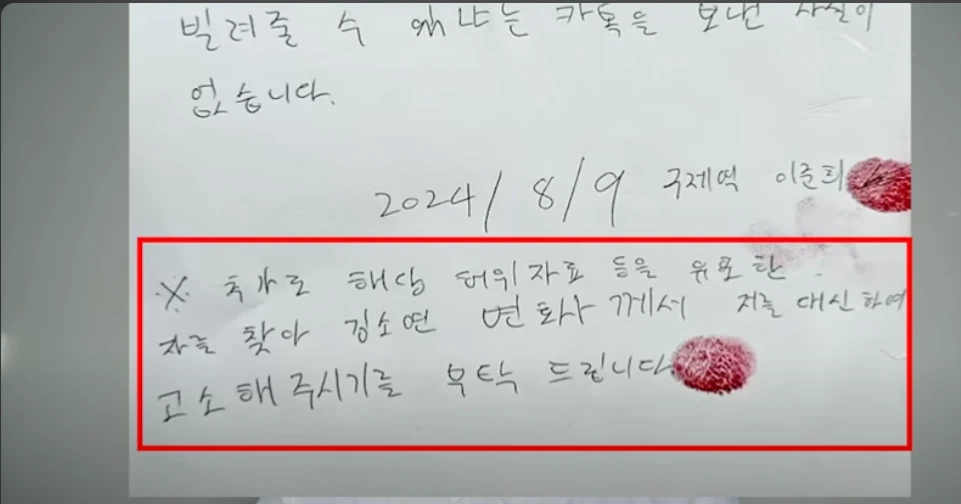 빌려줄 수 왜 나는 카톡을 보낸 사실이
없습니다.
2024/ 8/9 구제역 이준희
※ 추가로 해당 허위자료 등을 유포한
자를 찾아 김소연 변호사 께서 저를 대신하여
고소해 주시기를 부탁 드린니다.